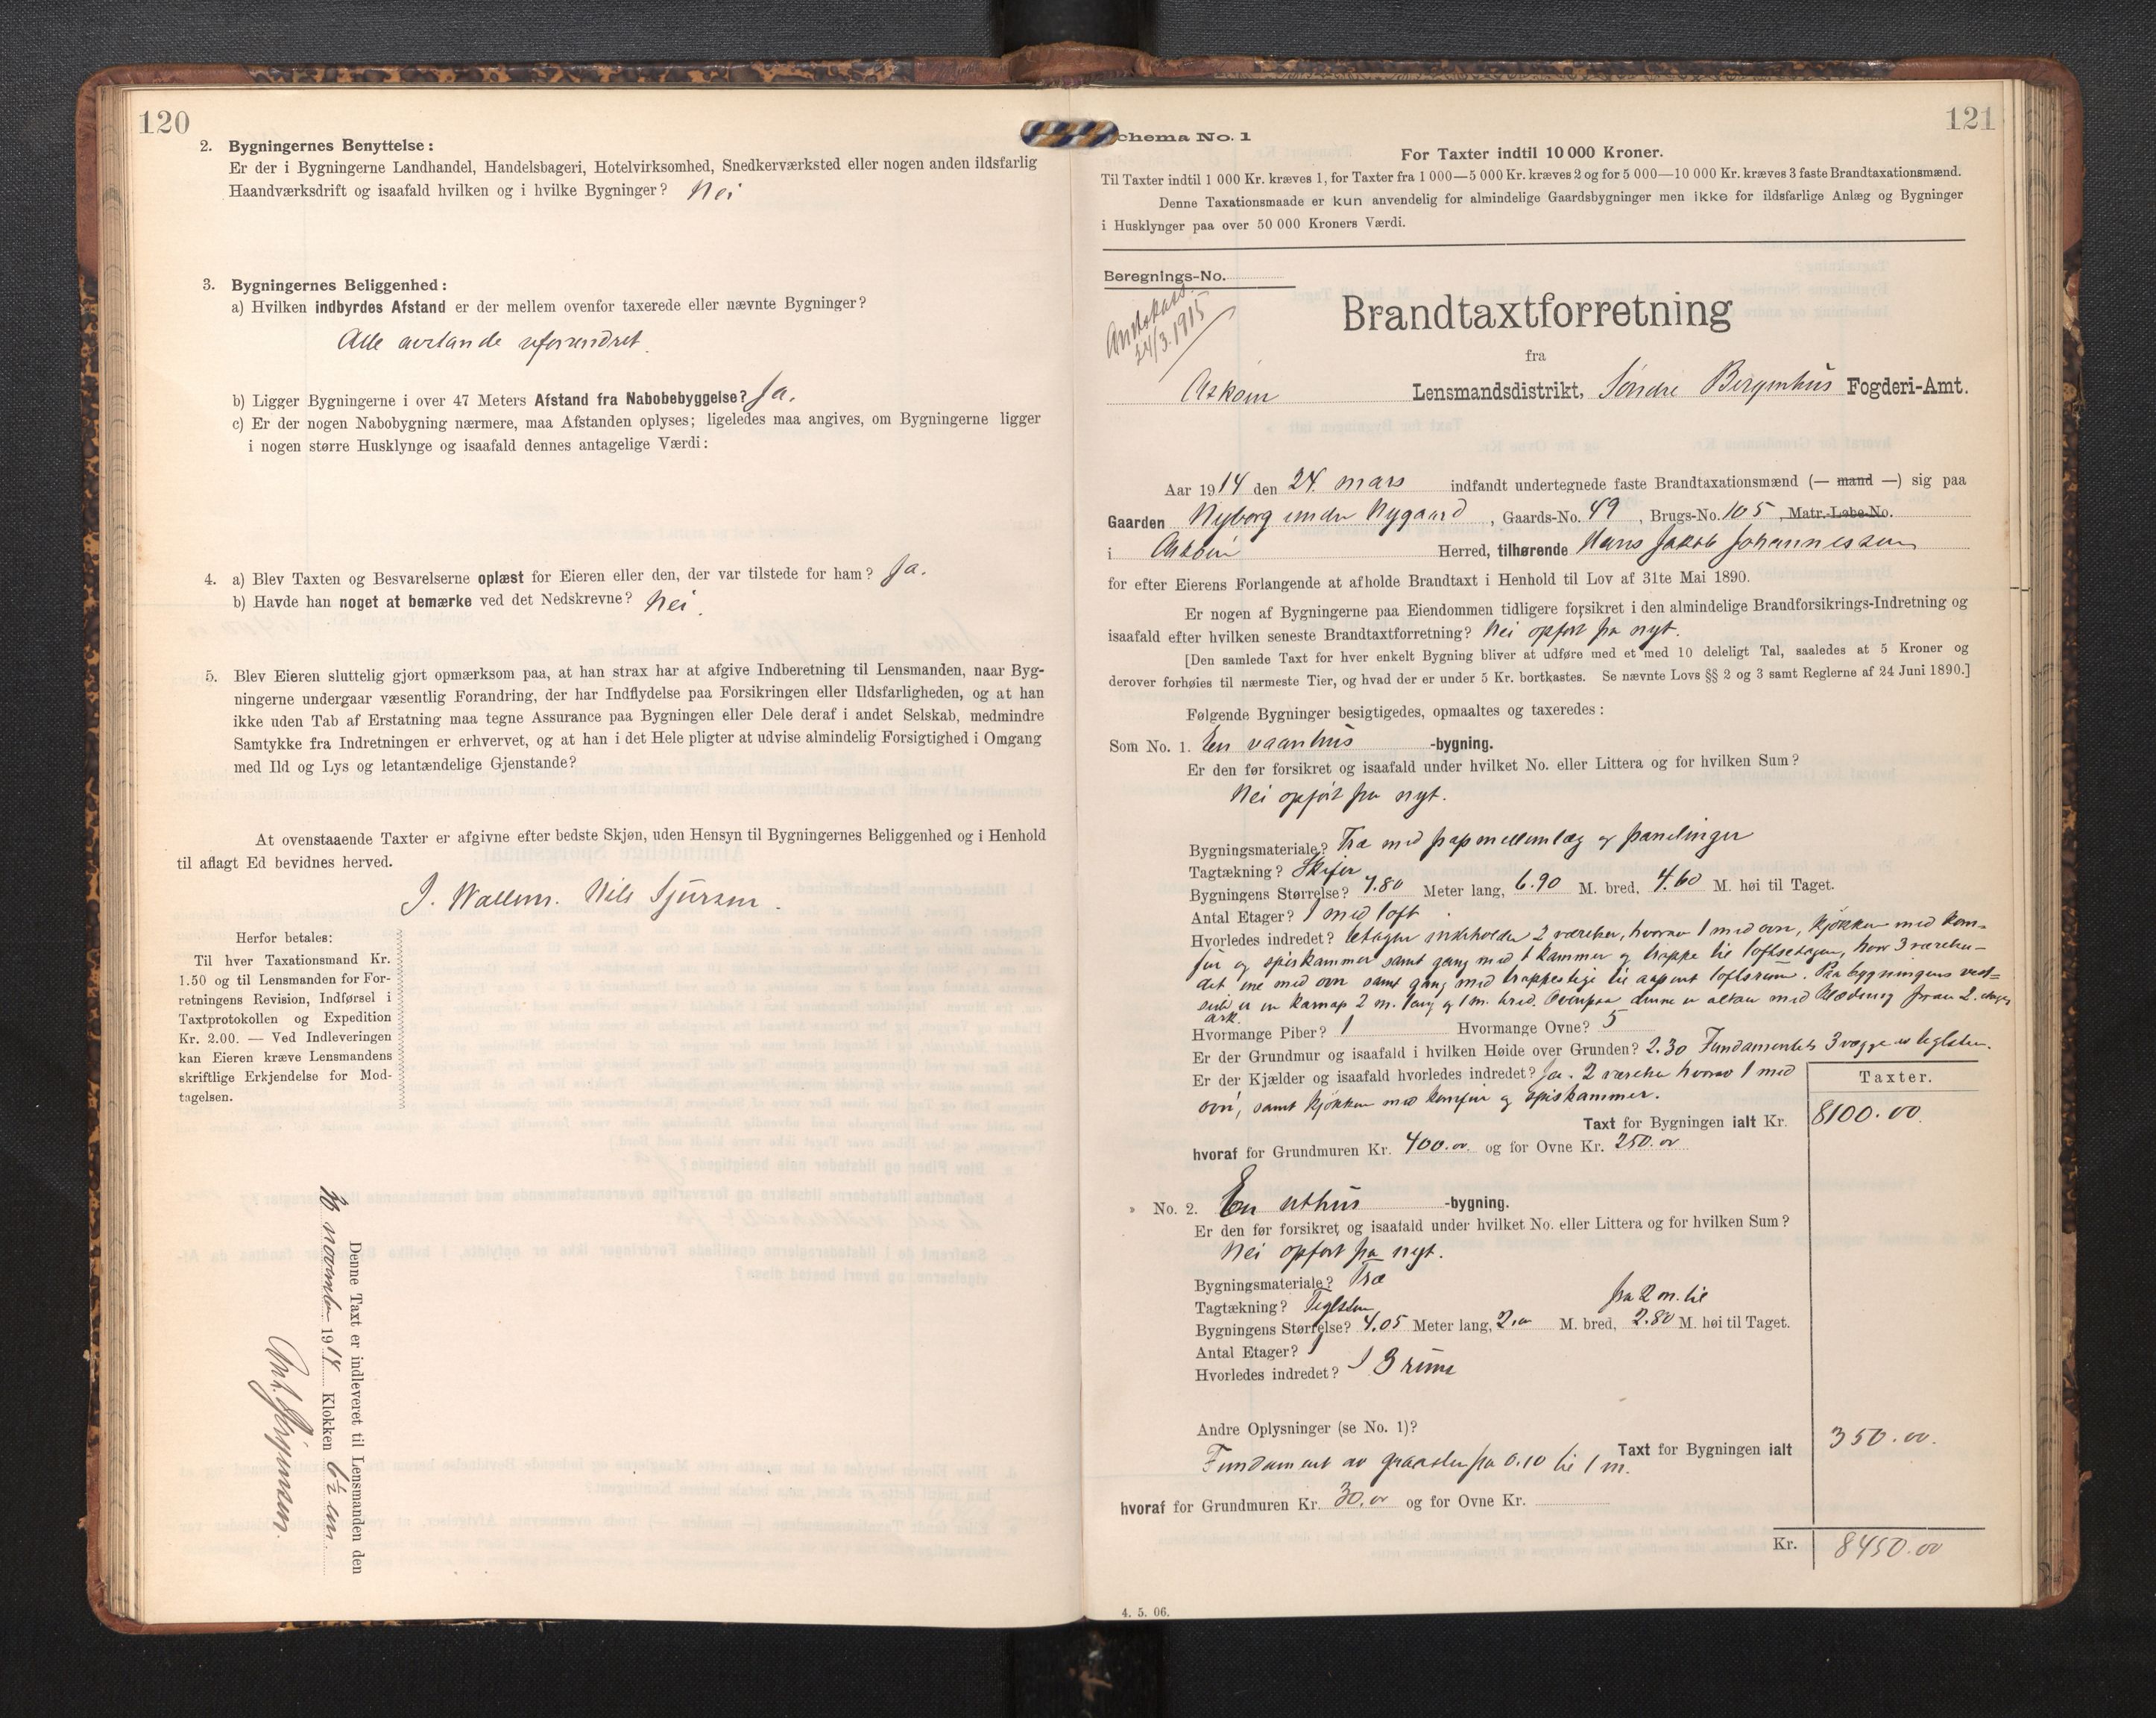 120
2. Bygningernes Benyttelse:
Er der i Bygningerne Landhandel, Handelsbageri, Hotelvirksomhed, Snedkerværksted eller nogen anden ildsfarlig
Haandværksdrift og isaafald hvilken og i hvilke Bygninger? Nei
3. Bygningernes Beliggenhed:
a) Hvilken indbyrdes Afstand er der mellem ovenfor taxerede eller nævnte Bygninger?
Alle avstande uforandret.
b) Ligger Bygningerne i over 47 Meters Afstand fra Nabobebyggelse? Ja.
c) Er der nogen Nabobygning nærmere, maa Afstanden oplyses; ligeledes maa angives, om Bygningerne ligger
i nogen større Husklynge og isaafald dennes antagelige Værdi:
4. a) Blev Taxten og Besvarelserne oplæst for Eieren eller den, der var tilstede for ham? Ja.
b) Havde han noget at bemærke ved det Nedskrevne? Nei.
5. Blev Eieren sluttelig gjort opmærksom paa, at han strax har at afgive Indberetning til Lensmanden, naar Byg-
ningerne undergaar væsentlig Forandring, der har Indflydelse paa Forsikringen eller Ildsfarligheden, og at han
ikke uden Tab af Erstatning maa tegne Assurance paa Bygningen eller Dele deraf i andet Selskab, medmindre
Samtykke fra Indretningen er erhvervet, og at han i det Hele pligter at udvise almindelig Forsigtighed i Omgang
med Ild og Lys og letantændelige Gjenstande?
At ovenstaaende Taxter er afgivne efter bedste Skjøn, uden Hensyn til Bygningernes Beliggenhed og i Henhold
til aflagt Ed bevidnes herved.
J. Wallem. Nils Sjursen.
Herfor betales:
Til hver Taxationsmand Kr.
1.50 og til Lensmanden for For-
retningens Revision, Indførsel i
Taxtprotokollen og Expedition
Kr. 2.00. — Ved Indleveringen
kan Eieren kræve Lensmandens
skriftlige Erkjendelse for Mod-
tagelsen.
Denne Taxt er indleveret til Lensmanden den
november 1914 Klokken 6½ em.
121
Schema No. 1
For Taxter indtil 10 000 Kroner.
Til Taxter indtil 1 000 Kr. kræves 1, for Taxter fra 1 000—5 000 Kr. kræves 2 og for 5 000—10 000 Kr. kræves 3 faste Brandtaxationsmænd.
Denne Taxationsmaade er kun anvendelig for almindelige Gaardsbygninger men ikke for ildsfarlige Anlæg og Bygninger
i Husklynger paa over 50 000 Kroners Værdi.
Beregnings-No.
24/3.1915
Brandtaxtforretning
fra
Askøin Lensmandsdistrikt, Søndre Bergenhus Fogderi-Amt.
Aar 1914 den 24. mars indfandt undertegnede faste Brandtaxationsmænd (— mand —) sig paa
Gaarden Nyborg under Nygaard, Gaards-No. 49, Brugs-No. 105, Matr.-Løbe-No.
i Askøin Herred, tilhørende Hans Jakob Johannessen
for efter Eierens Forlangende at afholde Brandtaxt i Henhold til Lov af 31te Mai 1890.
Er nogen af Bygningerne paa Eiendommen tidligere forsikret i den almindelige Brandforsikrings-Indretning og
isaafald efter hvilken seneste Brandtaxtforretning? Nei opført fra nyt.
[Den samlede Taxt for hver enkelt Bygning bliver at udføre med et med 10 deleligt Tal, saaledes at 5 Kroner og
derover forhøies til nærmeste Tier, og hvad der er under 5 Kr. bortkastes. Se nævnte Lovs §§ 2 og 3 samt Reglerne af 24 Juni 1890.]
Følgende Bygninger besigtigedes, opmaaltes og taxeredes:
Som No. 1. En vaanhus -bygning.
Er den før forsikret og isaafald under hvilket No. eller Littera og for hvilken Sum?
Nei opført fra nyt.
Bygningsmateriale? Træ med papmellemlæg og panelinger
Tagtækning? Skifer
Bygningens Størrelse? 7.80 Meter lang, 6.90 M. bred, 4.60 M. høi til Taget.
Antal Etager? 1 med loft
Hvorledes indredet? Etagen indeholder 2 værelser, hvorav 1 med ovn, kjøkken med kom-
fur og spiskammer samt gang med 1 kammer og trappe til loftsetagen, hvor 3 værelser
det ene med ovn samt gang med trappestige til aapent loftsrum. Paa bygningens vest-
side er en karnap 2 m. lang og 1 m. bred. Ovenpaa denne er altan med klædning fra 2. etages
ark.
Hvormange Piber? 1 Hvormange Ovne? 5
Er der Grundmur og isaafald i hvilken Høide over Grunden? 2.30 Fundamentets 3 vægge av teglsten.
Er der Kjælder og isaafald hvorledes indredet? Ja. 2 værelser hvorav 1 med
ovn, samt kjøkken med komfur og spiskammer.
Taxter.
Taxt for Bygningen ialt Kr. 8100.00
hvoraf for Grundmuren Kr. 400.00 og for Ovne Kr. 250.00
» No. 2. En uthus -bygning.
Er den før forsikret og isaafald under hvilket No. eller Littera og for hvilken Sum?
Nei opført fra nyt.
Bygningsmateriale? Træ
Tagtækning? Teglsten fra 2 m. til
Bygningens Størrelse? 4.05 Meter lang, 2.00 M. bred, 2.80 M. høi til Taget.
Antal Etager? 1
Hvorledes indredet? I 3 rum
Andre Oplysninger (se No. 1)?
Taxt for Bygningen ialt 350.00.
Fundament av graasten fra 0.10 til 1 m.
hvoraf for Grundmuren Kr. 30.00 og for Ovne Kr.
Kr. 8450.00
4. 5. 06.